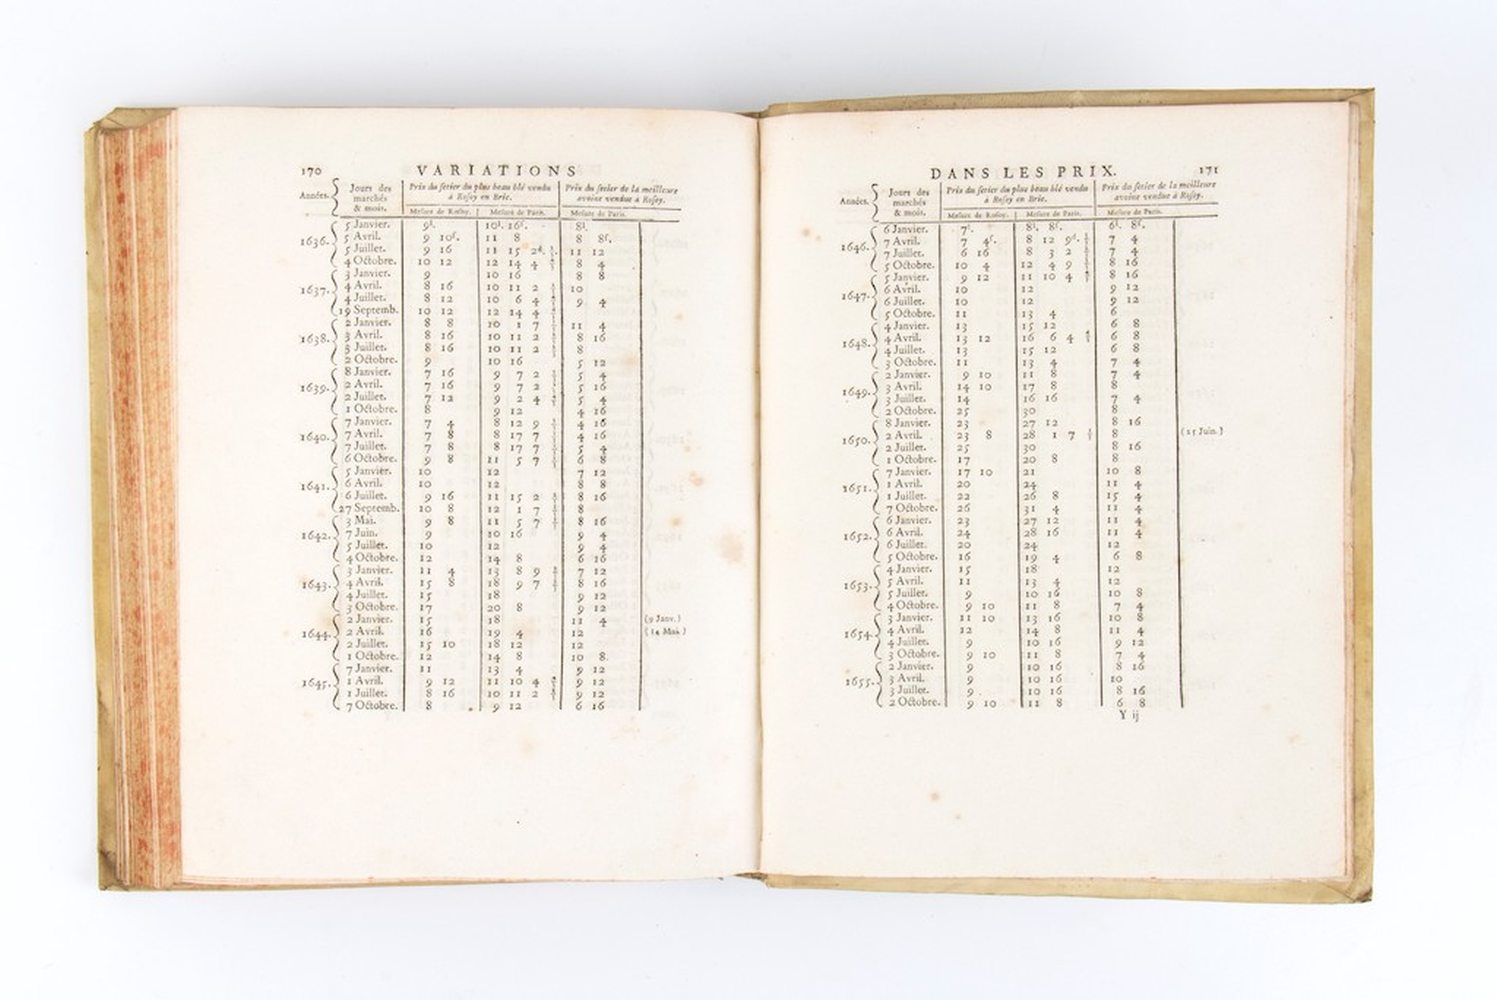 170 VARIATIONS
Années. Jours des marchés & mois. Prix du setier du plus beau blé vendu à Rosoy en Brie. Prix du setier de la meilleure avoine vendue à Rosoy.
Mesure de Rosoy. Mesure de Paris. Mesure de Paris.
1636. 5 Janvier. 9l. 10l. 16s. 8l.
5 Avril. 9 10s. 11 8 8 8s.
5 Juillet. 9 16 11 15 2d. 11 12
4 Octobre. 10 12 12 14 4 8 4
1637. 3 Janvier. 9 10 16 8 8
4 Avril. 8 16 10 11 2 10
4 Juillet. 8 12 10 6 4 9 4
19 Septemb. 10 12 12 14 4
1638. 2 Janvier. 8 8 10 1 7 11 4
3 Avril. 8 16 10 11 2 8 16
3 Juillet. 8 16 10 11 2 8
2 Octobre. 9 10 16 5 12
1639. 8 Janvier. 7 16 9 7 2 5 4
2 Avril. 7 16 9 7 2 5 16
2 Juillet. 7 12 9 2 4 5 4
1 Octobre. 8 9 12 4 16
1640. 7 Janvier. 7 4 8 12 9 4 16
7 Avril. 7 8 8 17 7 4 16
7 Juillet. 7 8 8 17 7 5 4
6 Octobre. 9 8 11 5 7 6 8
1641. 5 Janvier. 10 12 7 12
6 Avril. 10 12 8 8
6 Juillet. 9 16 11 15 2 8 16
27 Septemb. 10 8 12 1 7 8
1642. 3 Mai. 9 8 11 5 7 8 16
7 Juin. 9 10 16 9 4
5 Juillet. 10 12 9 4
4 Octobre. 12 14 8 6 16
1643. 3 Janvier. 11 4 13 8 9 7 12
4 Avril. 15 8 18 9 7 8 16
4 Juillet. 15 18 9 12
3 Octobre. 17 20 8 9 12
1644. 2 Janvier. 15 18 11 4 (9 Janv.)
2 Avril. 16 19 4 12 (14 Mai.)
2 Juillet. 15 10 18 12 12
1 Octobre. 12 14 8 10 8.
1645. 7 Janvier. 11 13 4 9 12
1 Avril. 9 12 11 10 4 9 12
1 Juillet. 8 16 10 11 2 9 12
7 Octobre. 8 9 12 6 16
DANS LES PRIX. 171
Années. Jours des marchés & mois. Prix du setier du plus beau blé vendu à Rosoy en Brie. Prix du setier de la meilleure avoine vendue à Rosoy.
Mesure de Rosoy. Mesure de Paris. Mesure de Paris.
1646. 6 Janvier. 7l. 8l. 8s. 6l. 8s.
7 Avril. 7 4s. 8 12 9d. 7 4
7 Juillet. 6 16 8 3 2 7 4
5 Octobre. 10 4 12 4 9 8 16
1647. 5 Janvier. 9 12 11 10 4 8 16
6 Avril. 10 12 9 12
6 Juillet. 10 12 9 12
5 Octobre. 11 13 4 6
1648. 4 Janvier. 13 15 12 6 8
4 Avril. 13 12 16 6 4 6 8
4 Juillet. 13 15 12 6 8
3 Octobre. 11 13 4 7 4
1649. 2 Janvier. 9 10 11 8 7 4
3 Avril. 14 10 17 8 8
3 Juillet. 14 16 16 7 4
2 Octobre. 25 30 8
1650. 8 Janvier. 23 27 12 8 16
2 Avril. 23 8 28 1 7 8 (25 Juin.)
2 Juillet. 25 30 8 16
1 Octobre. 17 20 8 8
1651. 7 Janvier. 17 10 21 10 8
1 Avril. 20 24 11 4
1 Juillet. 22 26 8 15 4
7 Octobre. 26 31 4 11 4
1652. 6 Janvier. 23 27 12 11 4
6 Avril. 24 28 16 11 4
6 Juillet. 20 24 12
5 Octobre. 16 19 4 6 8
1653. 4 Janvier. 15 18 12
5 Avril. 11 13 4 12
5 Juillet. 9 10 16 10 8
4 Octobre. 9 10 11 8 7 4
1654. 3 Janvier. 11 10 13 16 10 8
4 Avril. 12 14 8 11 4
4 Juillet. 9 10 16 9 12
3 Octobre. 9 10 11 8 7 4
1655. 2 Janvier. 9 10 16 8 16
3 Avril. 9 10 16 10
3 Juillet. 9 10 16 8 16
2 Octobre. 9 10 11 8 6 8
Y ij